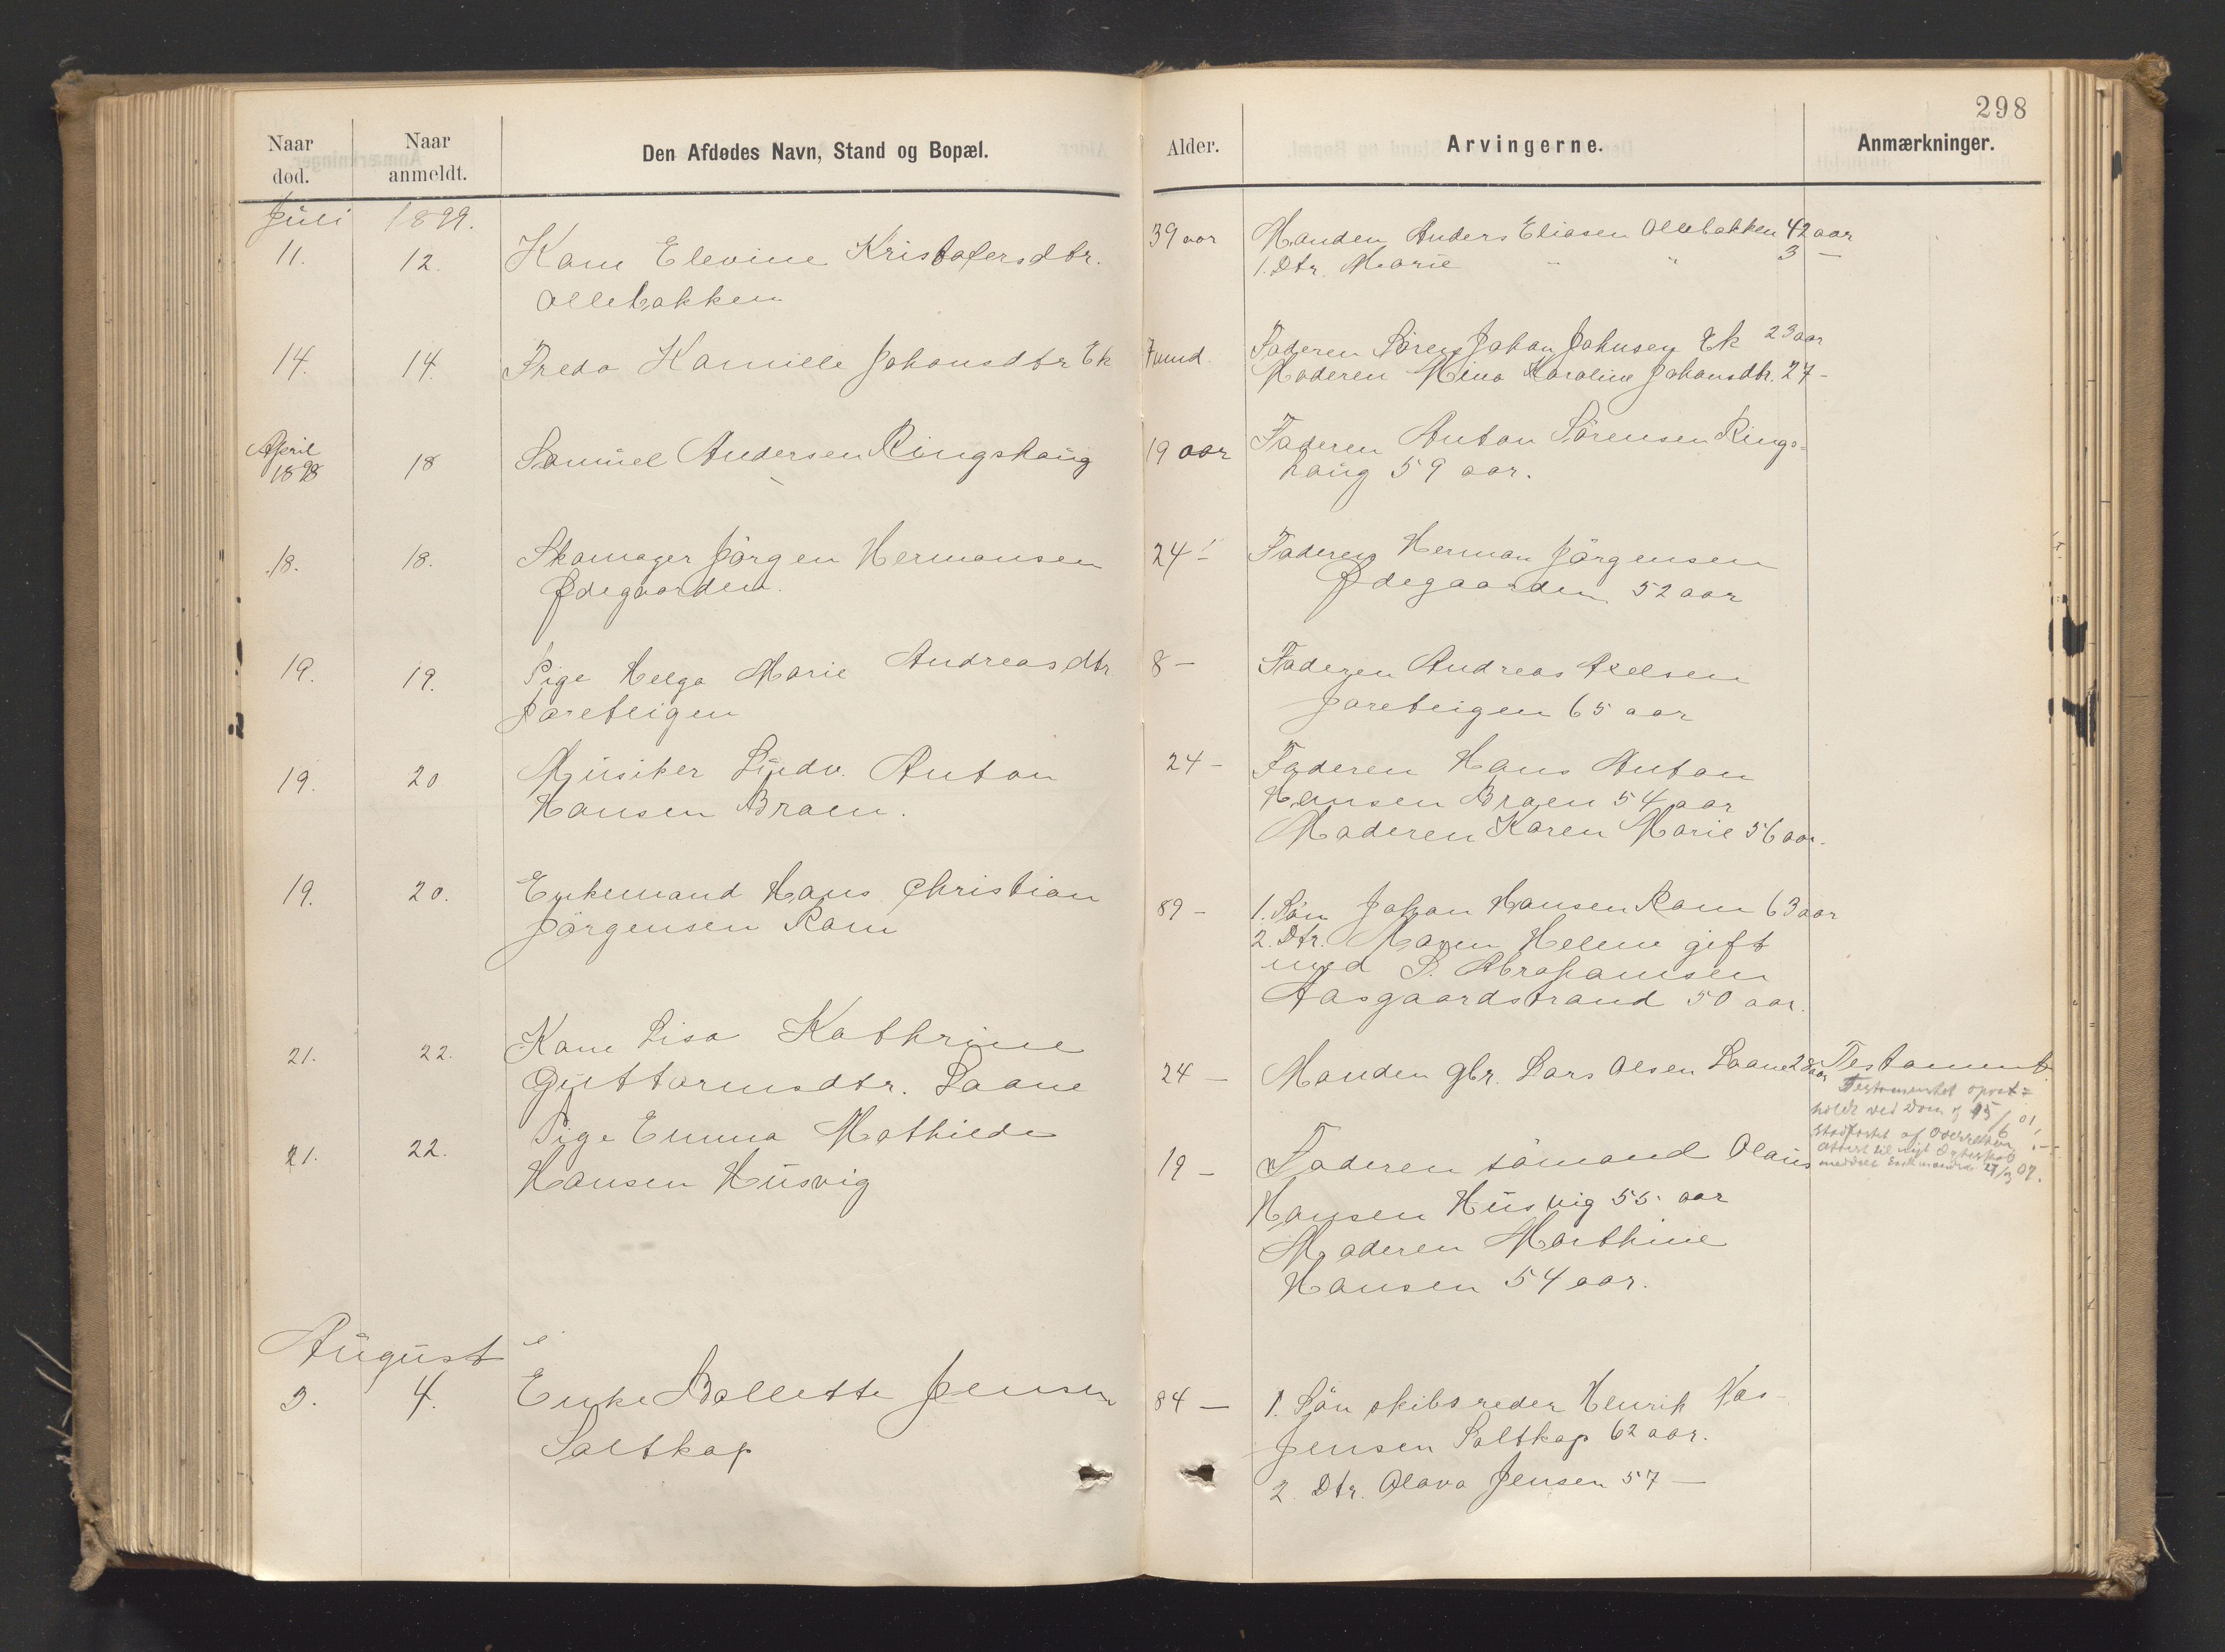 298
Naar død.
Naar anmeldt.
Den Afdødes Navn, Stand og Bopæl.
Alder.
Arvingerne.
Anmærkninger.
Juli 1899.
11. 12. Kone Elevine Kristofersdtr. 39 aar Manden Anders Eliasen Ollebakken 42 aar
Ollebakken 1. Dtr. Marie " " 3 —
14. 14. Freda Kamille Johansdtr Ek 7 mnd. Faderen Sören Johan Johnsen Ek 23 aar
Moderen Mina Karoline Johansdtr. 27 -
April 1898 18 Samuel Andersen Ringshaug 19 aar Faderen Anton Sörensen Rings=
haug 59 aar.
18. 18. Skomager Jörgen Hermansen 24 - Faderen Herman Jörgensen
Ødegaarden. Ødegaarden 52 aar
19. 19. Pige Helga Marie Andreasdtr 8 — Faderen Andreas Axelsen
Jareteigen Jareteigen 65 aar
19. 20 Musiker Ludv. Anton 24 - Faderen Hans Anton
Hansen Braen. Hansen Braen 54 aar
Moderen Karen Marie 56 aar.
19. 20. Enkemand Hans Christian 89 - 1. Sön Johan Hansen Ram 63 aar
Jörgensen Ram 2. Dtr. Maren Helene gift
med S. Abrahamsen
Aasgaardstrand 50 aar.
21. 22. Kone Lisa Kathrine 24 — Manden gbr. Lars Olsen Laane 28 aar Testament.
Guttormsdtr. Laane
Testamentet opret=
holdt ved Dom af 15/6 01,
stadfæstet af Overretten
attest til nyt Ægteskab
meddelt Enkemanden 27/3 07.
21. 22. Pige Emma Mathilde 19 — Faderen sömand Olaus
Hansen Husvig Hansen Husvig 55 aar
Moderen Marthine
Hansen 54 aar.
August
3. 4. Enke Bollette Jensen 84 — 1. Sön skibsreder Henrik
Saltkop Jensen Saltkop 62 aar.
2 Dtr. Olava Jensen 57 —